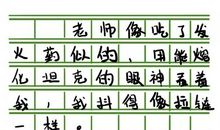 老师像吃了发
火药似的，用能熔
化坦克的眼神看着
我，我抖得像拉链
一样。